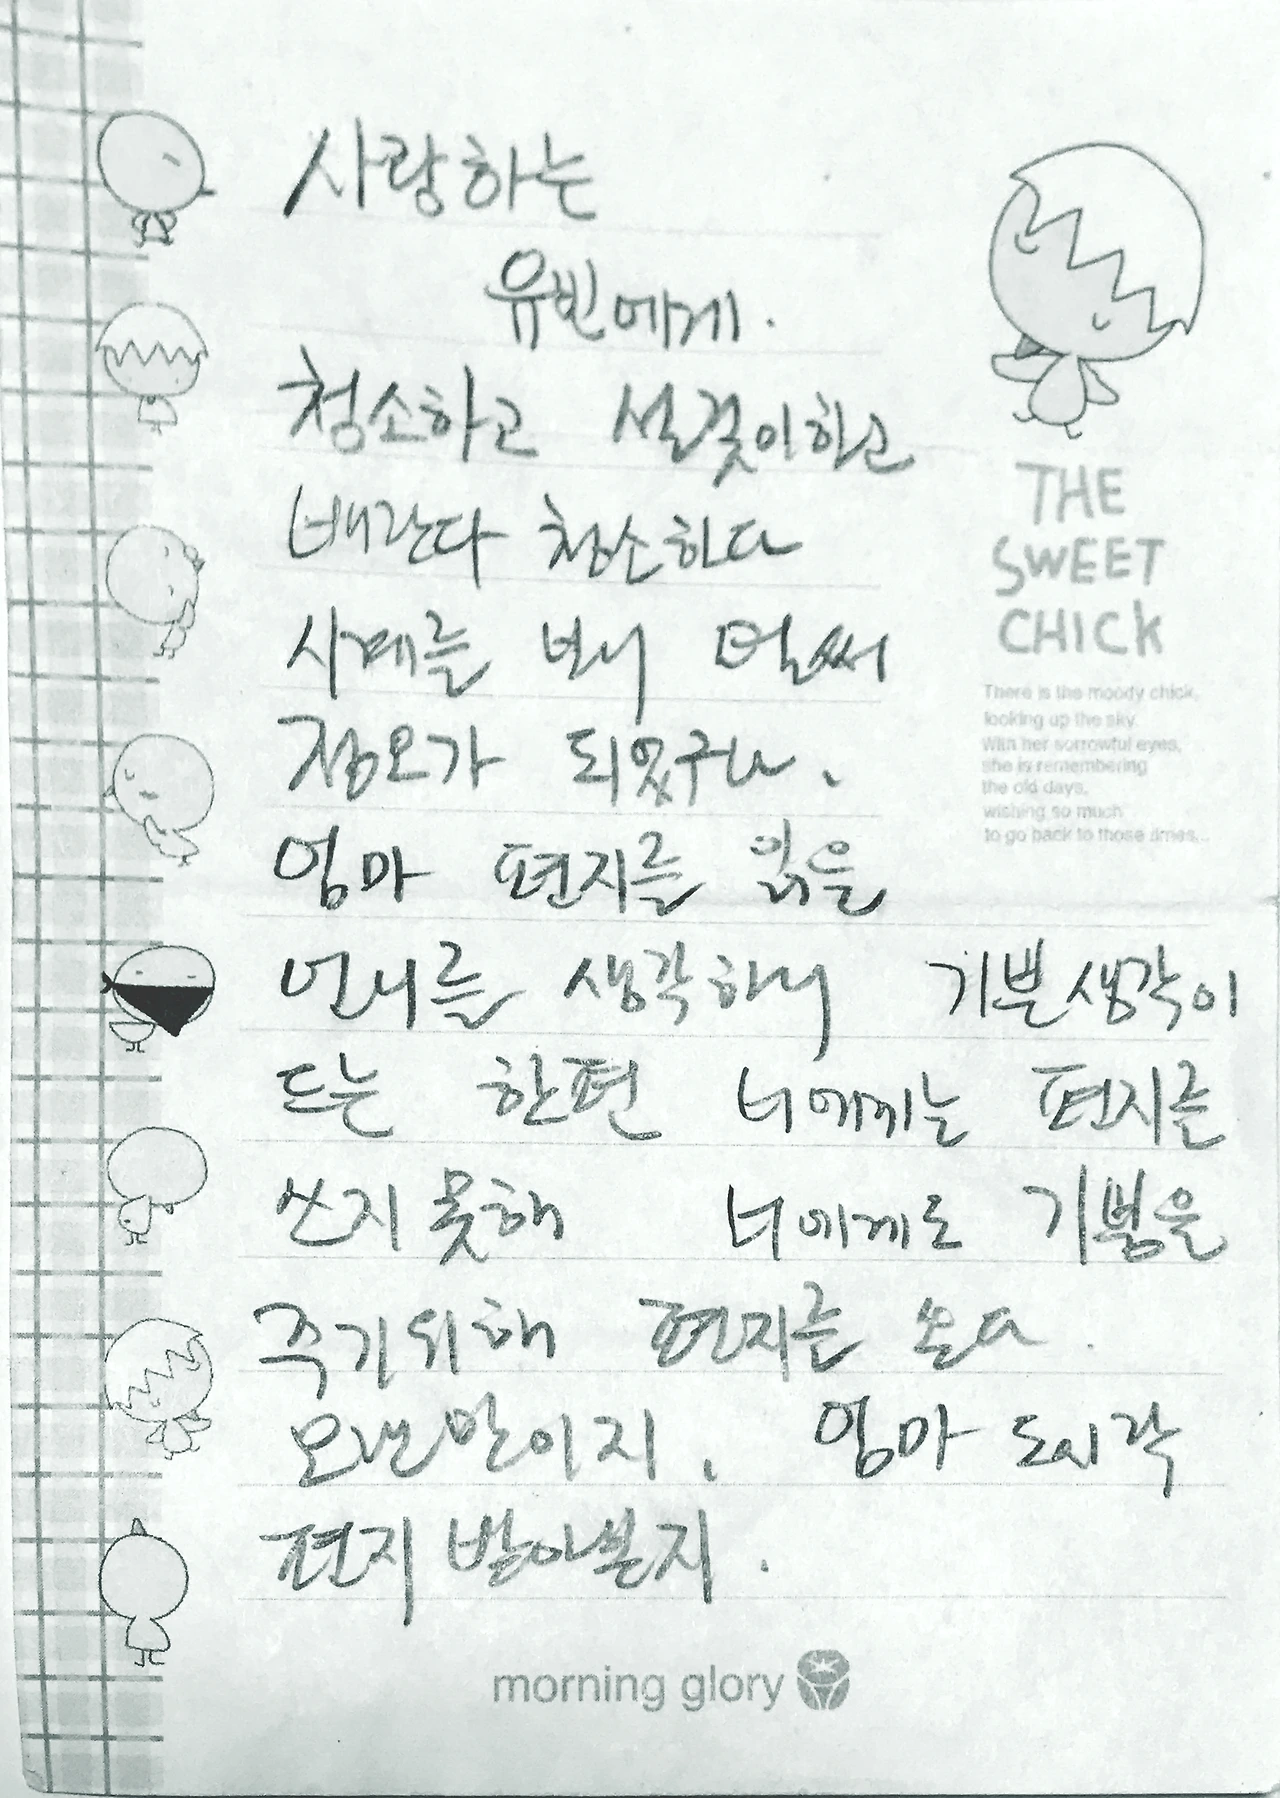 사랑하는
유빈에게.
청소하고 설겆이하고
베란다 청소하다
시계를 보니 벌써
정오가 되었구나.
엄마 편지를 읽을
언니를 생각하니 기쁜생각이
드는 한편 너에게는 편지를
쓰지못해 너에게도 기쁨을
주기위해 편지를 쓴다.
오랜만이지. 엄마 도시락
편지 받아본지.
THE
SWEET
CHICK
There is the moody chick,
looking up the sky.
With her sorrowful eyes,
she is remembering
the old days,
wishing so much
to go back to those times...
morning glory